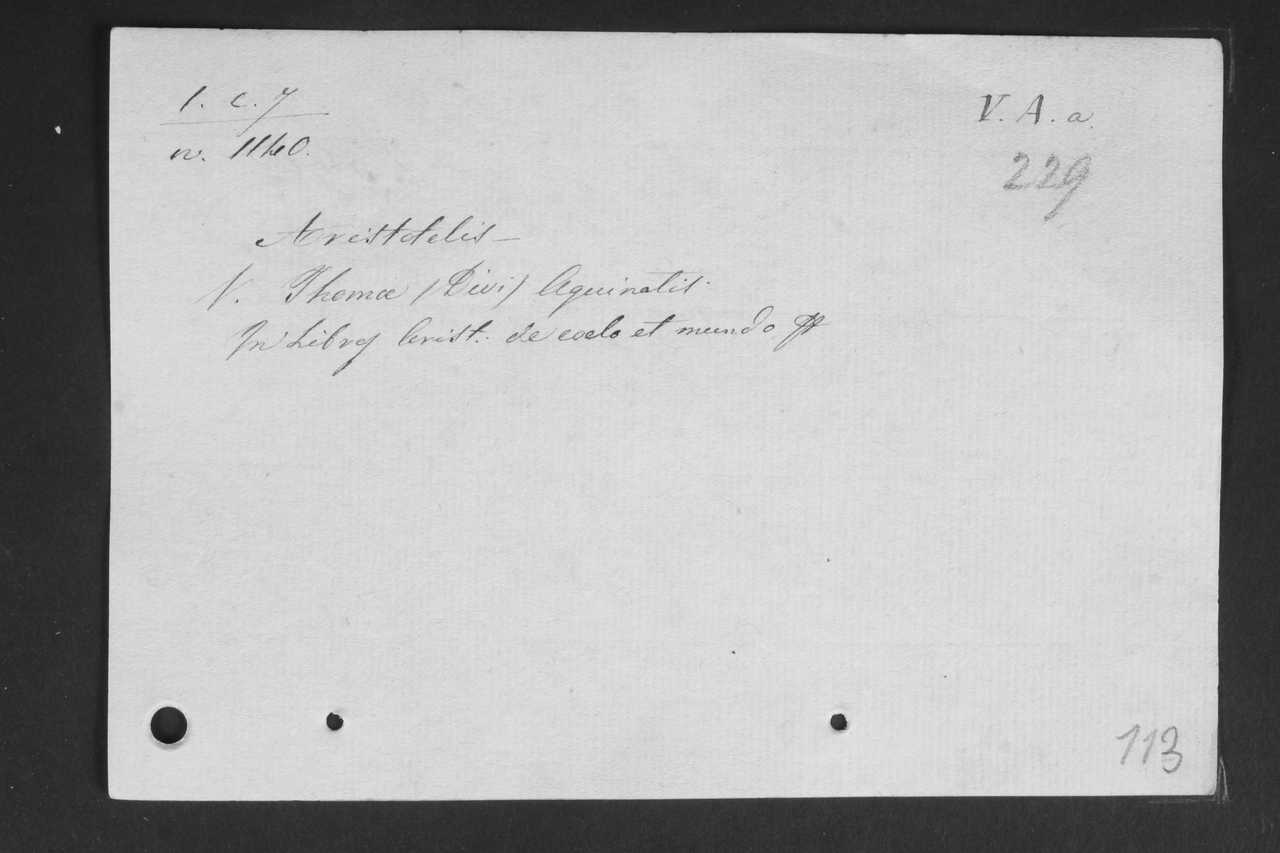 1. c. 7
n. 1140.
V. A. a.
229
Aristotelis—
V. Thomæ (Divi) Aquinatis.
In Libros Arist. de coelo et mundo
113